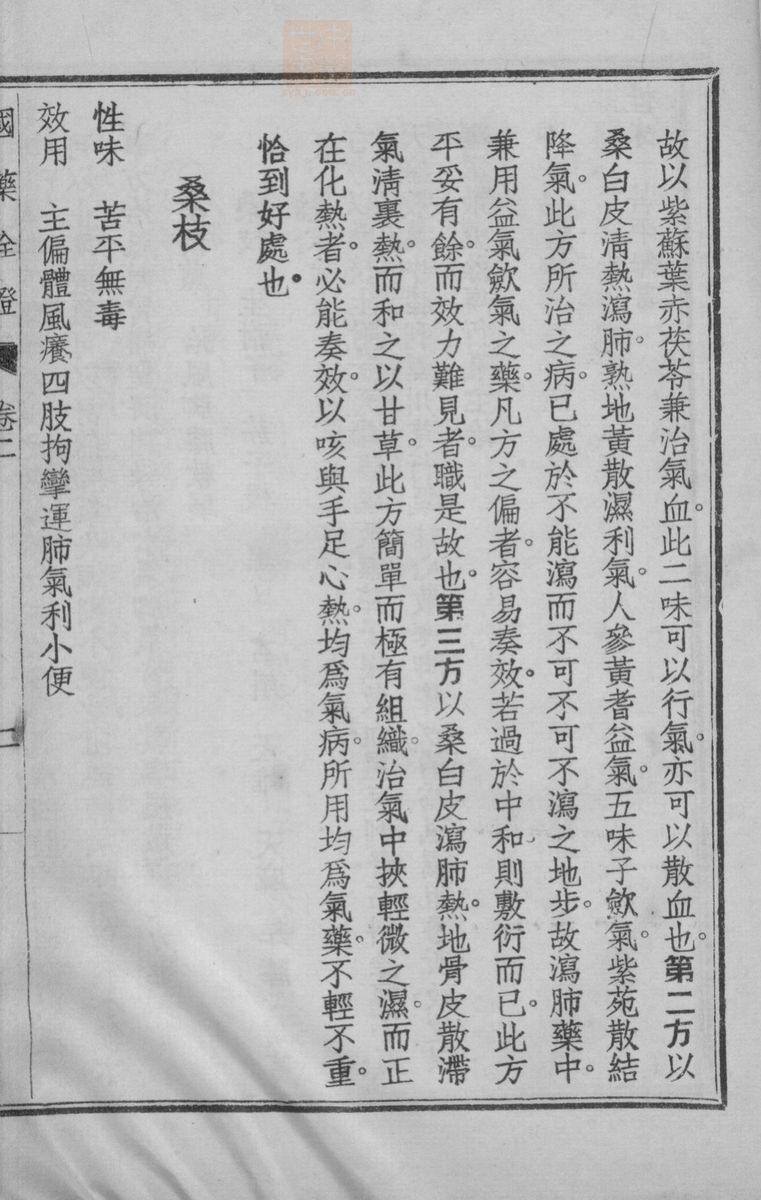 故以紫蘇葉赤茯苓兼治氣血。此二味可以行氣。亦可以散血也。第二方以
桑白皮清熱瀉肺。熟地黃散濕利氣。人參黃耆益氣。五味子歛氣。紫苑散結
降氣。此方所治之病。已處於不能瀉而不可不可不瀉之地步。故瀉肺藥中。
兼用益氣歛氣之藥。凡方之偏者。容易奏效。若過於中和、則敷衍而已。此方
平妥有餘。而效力難見者。職是故也。第三方以桑白皮瀉肺熱。地骨皮散滯
氣清裏熱。而和之以甘草。此方簡單而極有組織。治氣中挾輕微之濕。而正
在化熱者。必能奏效。以咳與手足心熱。均爲氣病。所用均爲氣藥。不輕不重。
恰到好處也。
桑枝
性味　苦平無毒
效用　主偏體風癢四肢拘攣運肺氣利小便
國藥詮證　卷二　二